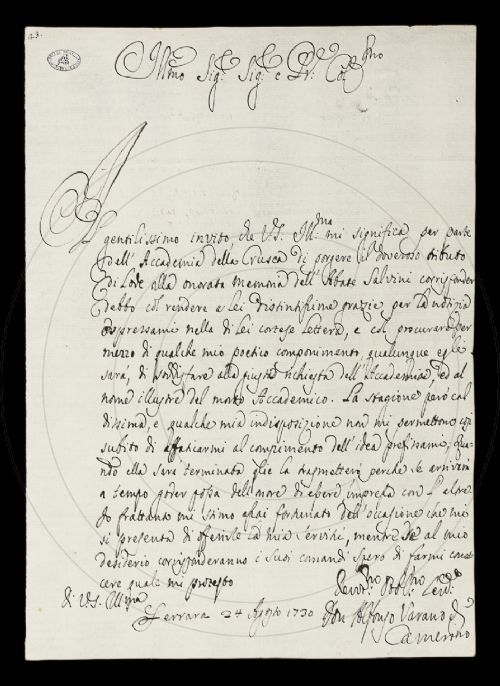 123.
Illmo Sig.r Sig.r e Pr. Col.mo
Al gentilissimo invito, che V.S. Ill.ma mi significa per parte
dell' Accademia della Crusca di porgere il doveroso tributo
di Lode alla onorata memoria dell' Abate Salvini corrisponder
debbo col rendere a Lei distintissime grazie per la notizia
espressami nella di Lei cortese Lettera, e col procurare per
mezzo di qualche mio poetico componimento, qualunque egli
sarà, di soddisfare alla giusta richiesta dell' Accademia, ed al
nome illustre del morto Accademico. La stagione però cal
dissima, e qualche mia indisposizione non mi permettono così
subito di affaticarmi al compimento dell' idea prefissami, qua-
ndo ella sarà terminata glie la trasmetterò perche se arriverà
a tempo goder possa dell' onore di essere impressa con l' altre.
Io frattanto mi stimo assai fortunato dell' occasione che mi
si presenta di offerirle la mia servitù, mentre se al mio
desiderio corrisponderanno i suoi comandi spero di farmi cono
scere quale mi protesto
di V.S. Ill.ma
Devot.mo Obbl.mo Serv.e
Ferrara 24 Agosto 1730
Don Alfonso Varano di
Camerino